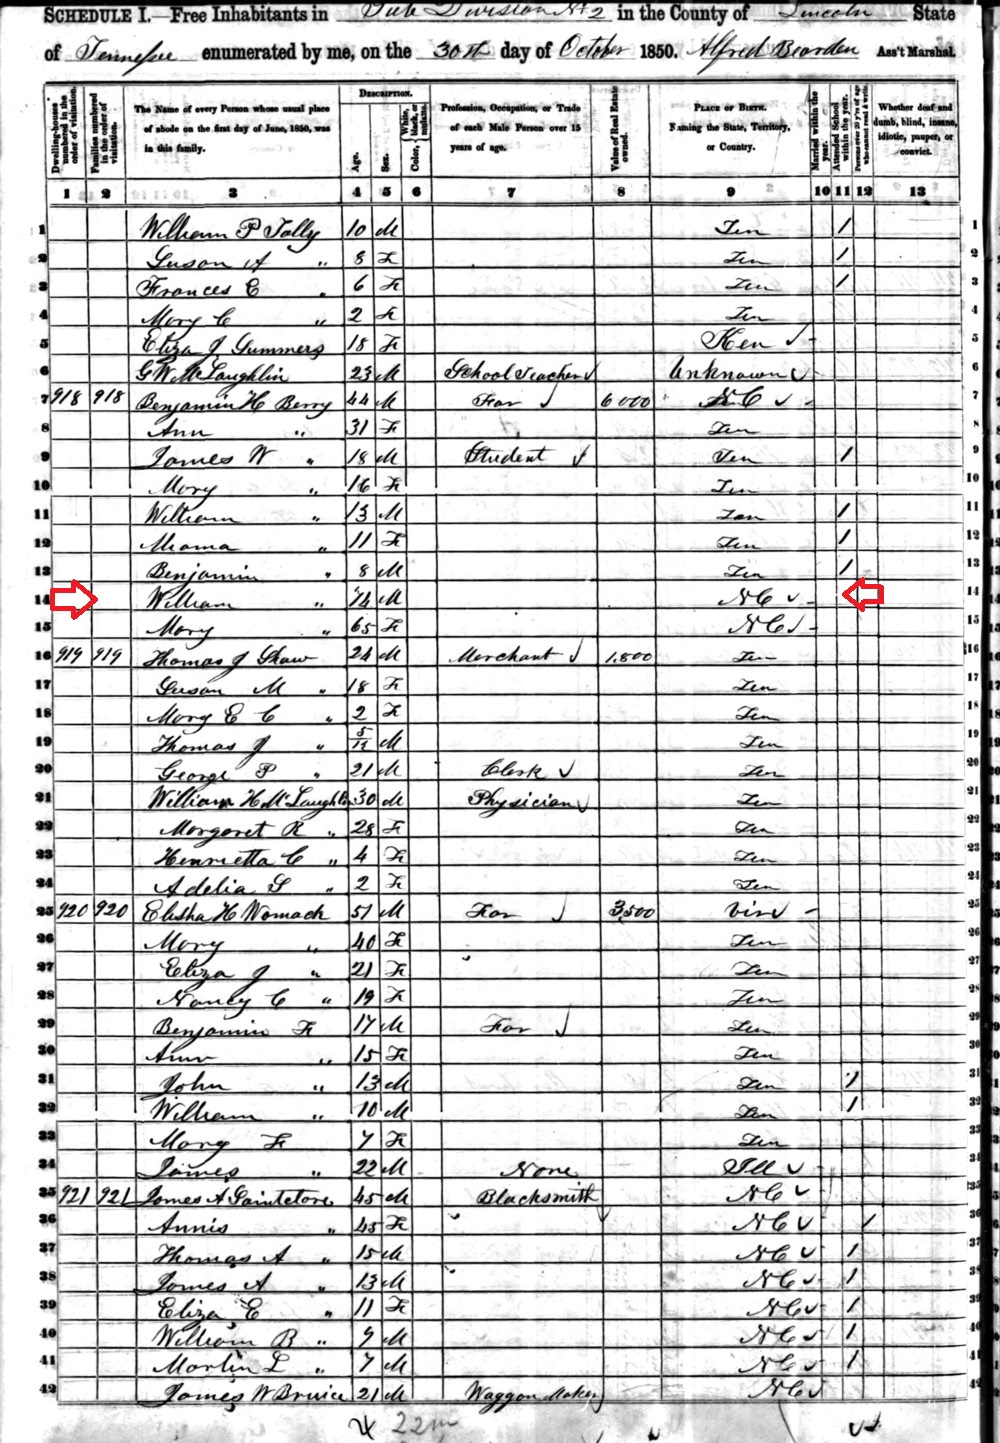 SCHEDULE I.—Free Inhabitants in Sub Division No 2 in the County of Lincoln State
of Tennessee enumerated by me, on the 30th day of October 1850. Alfred Bearden Ass't Marshal.
Dwelling-houses numbered in the order of visitation. Families numbered in the order of visitation. The Name of every Person whose usual place of abode on the first day of June, 1850, was in this family. DESCRIPTION. Age. Sex. Color, White, black, or mulatto. Profession, Occupation, or Trade of each Male Person over 15 years of age. Value of Real Estate owned. PLACE OF BIRTH. Naming the State, Territory, or Country. Married within the year. Attended School within the year. Persons over 20 y'rs of age who cannot read & write. Whether deaf and dumb, blind, insane, idiotic, pauper, or convict.
1 2 3 4 5 6 7 8 9 10 11 12 13
1 William P Tolly 10 M Ten 1 1
2 Susan A " 8 F Ten 1 2
3 Frances E " 6 F Ten 1 3
4 Mary C " 2 F Ten 4
5 Eliza J Summers 18 F Ken ✓ - 5
6 G W McLaughlin 23 M School Teacher ✓ Unknown ✓ - 6
7 918 918 Benjamin H Berry 44 M Far ✓ 6000 NC ✓ - 7
8 Ann " 31 F Ten 8
9 James W " 18 M Student ✓ Ten 1 9
10 Mary " 16 F Ten 10
11 William " 13 M Ten 1 11
12 " 11 F Ten 1 12
13 Benjamin " 8 M Ten 1 13
14 William " 74 M NC ✓ - 14
15 Mary " 65 F NC ✓ - 15
16 919 919 Thomas J Shaw 24 M Merchant ✓ 1,800 Ten 16
17 Susan M " 18 F Ten 17
18 Mary E C " 2 F Ten 18
19 Thomas J " 5/12 M Ten 19
20 George P " 21 M Clerk ✓ Ten 20
21 William H McLaughlin 30 M Physician ✓ Ten 21
22 Margaret R " 28 F Ten 22
23 Henrietta C " 4 F Ten 23
24 Adelia S " 2 F Ten 24
25 920 920 Elisha H Womack 51 M Far ✓ 3,500 Vir ✓ - 25
26 Mary " 40 F Ten 26
27 Eliza J " 21 F Ten 27
28 Nancy C " 19 F Ten 28
29 Benjamin F 17 M Far ✓ Ten 29
30 Ann " 15 F Ten 30
31 John " 13 M Ten 1 31
32 William " 10 M Ten 1 32
33 Mary F 7 F Ten 33
34 James " 22 M None Ill ✓ 34
35 921 921 James A 45 M Blacksmith NC ✓ 35
36 Annis " 45 F NC ✓ 1 36
37 Thomas A " 15 M NC ✓ 1 37
38 James A " 13 M NC ✓ 1 38
39 Eliza E " 11 F NC ✓ 1 39
40 William B " 9 M NC ✓ 1 40
41 Martin L " 7 M NC ✓ 1 41
42 James W Bruice 21 M Waggon Maker NC ✓ 42
22 m